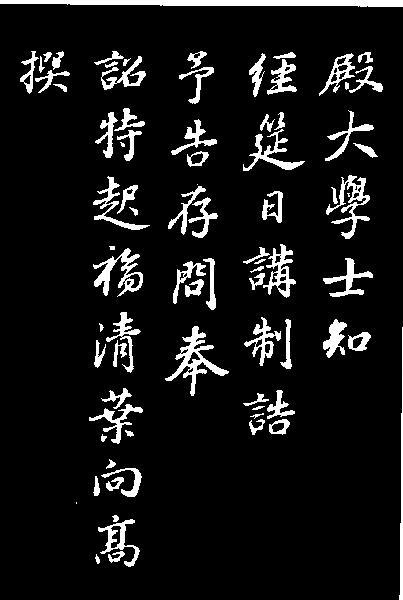 殿大學士知
經筵日講制誥
予告存問奉
詔特起福清葉向高
撰